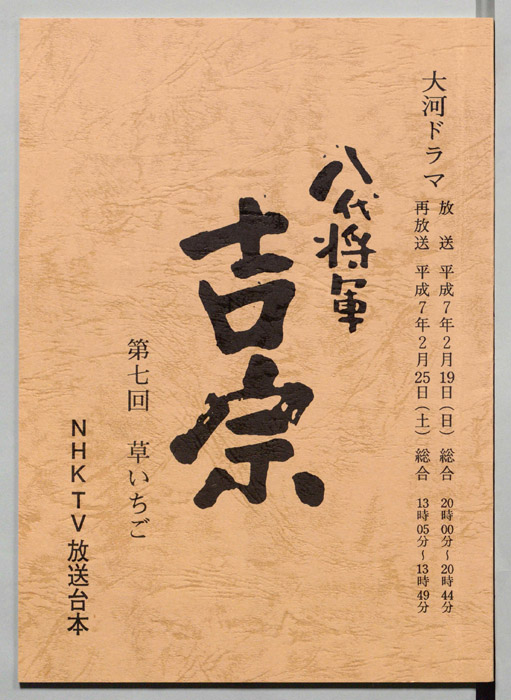 大河ドラマ
放送 平成7年2月19日(日) 総合 20時00分~20時44分
再放送 平成7年2月25日(土) 総合 13時05分~13時49分
八代将軍
吉宗
第七回 草いちご
NHKTV放送台本